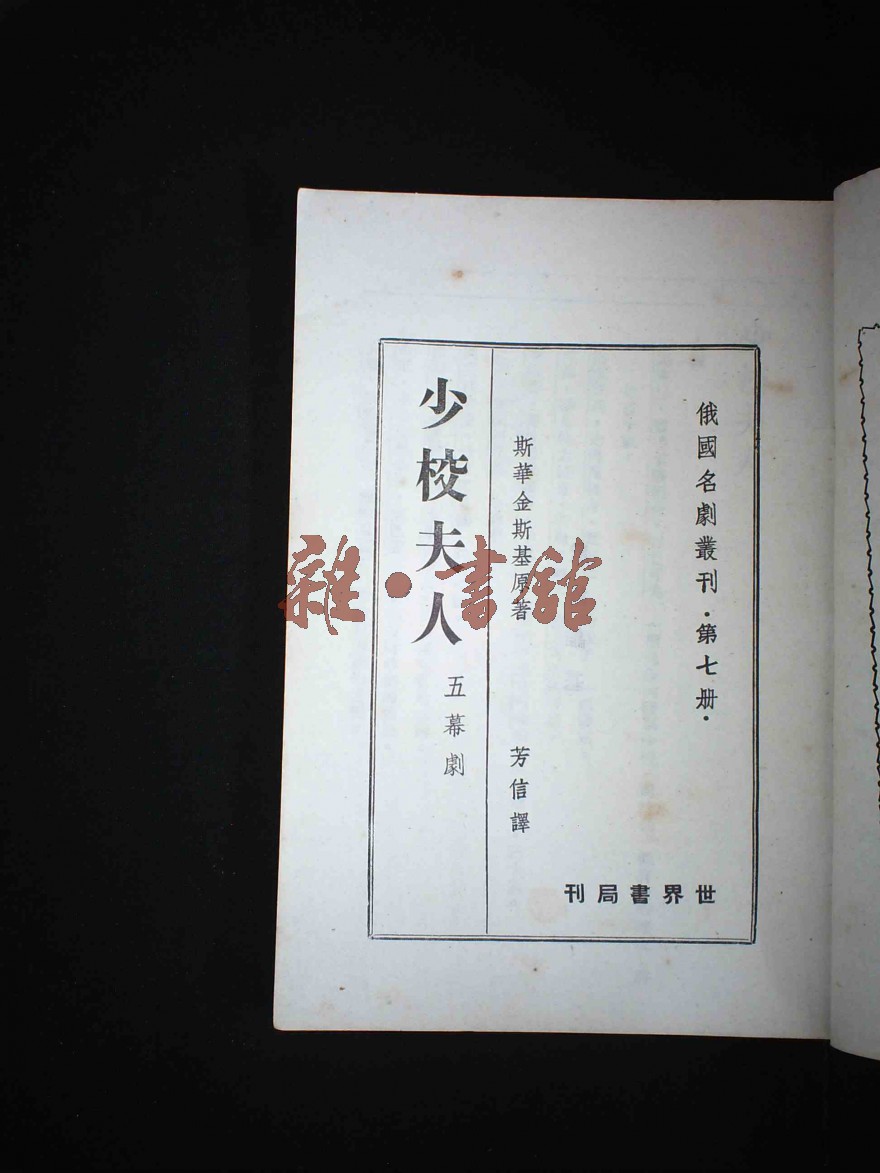 俄國名劇叢刊·第七册·
斯華金斯基原著 芳信譯
少校夫人
五幕劇
世界書局刊
雜·書館